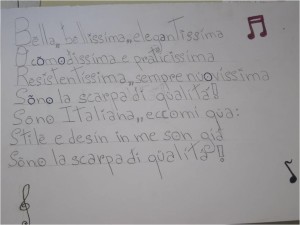 Bella,, bellissima,, elegantissima
Comodissima e praticissima
Resistentissima,, sempre nuovissima
Sono la scarpa di qualità!!
Sono Italiana,, eccomi qua:
Stile e desin in me son già
Sono la scarpa di qualità!!